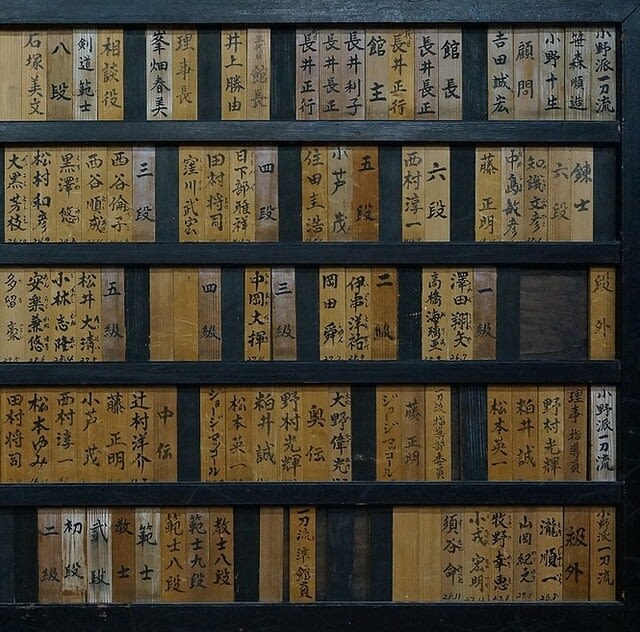 小野派一刀流
笹森順造
小野十生
顧問
吉田誠宏
館長
長井長正
長井正行
館主
長井利子
長井長正
長井正行
館長
井上勝由
理事長
峯畑春美
相談役
剣道範士
八段
石塚美文
錬士
六段
知識文彦
中高敏彦
藤正明
六段
西村淳一
五段
小芦茂
住田圭浩
四段
日下部雅祥
田村将司
窪川武宏
三段
西谷倫子
西谷順成
黒澤悠
松村和彦
大黒芳枝
段外
一級
澤田翔矢
二級
伊串洋祐
岡田舜
三級
中岡大揮
四級
五級
松井大濤
小林志隆
安樂兼悠
小野派一刀流
理事・指導員
野村光輝
粕井誠
松本英一
一刀流指導部委員
藤正明
ジョージ・マッコール
大野偉光
奥伝
野村光輝
粕井誠
松本英一
ジョージ・マッコール
中伝
辻村洋介
藤正明
小芦茂
西村淳一
松本ゆみ
田村将司
小野派一刀流
級外
瀧順一
山岡紀之
牧野幸恵
小戎宏明
須谷命
一刀流準館員
教士八段
範士九段
範士八段
範士
教士
弐段
初段
二級